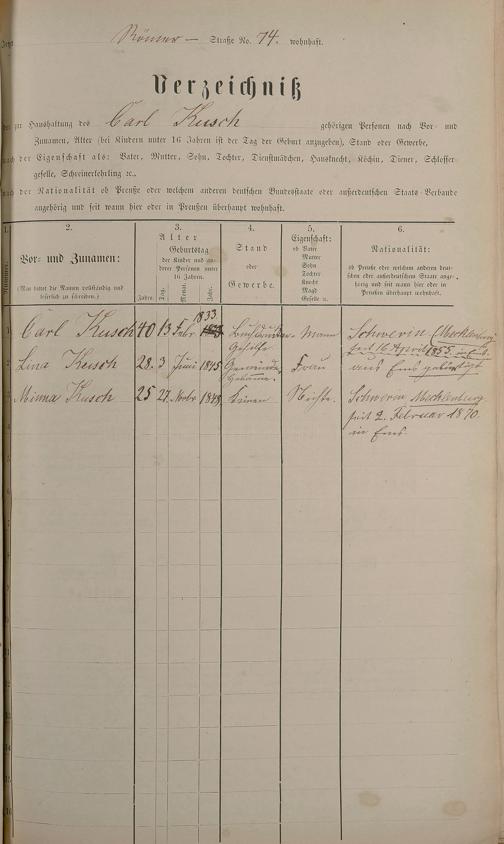 Römer — Straße No. 74. wohnhaft.
Verzeichniß
zur Haushaltung des Carl Kusch gehörigen Personen nach Vor- und
Zunamen, Alter (bei Kindern unter 16 Jahren ist der Tag der Geburt anzugeben), Stand oder Gewerbe,
nach der Eigenschaft als: Vater, Mutter, Sohn, Tochter, Dienstmädchen, Hausknecht, Köchin, Diener, Schlosser-
geselle, Schreinerlehrling ꝛc.,
nach der Nationalität ob Preuße oder welchem anderen deutschen Bundesstaate oder außerdeutschen Staats-Verbande
angehörig und seit wann hier oder in Preußen überhaupt wohnhaft.
1.
Nummer.
2.
Vor- und Zunamen:
(Man bittet die Namen vollständig und
leserlich zu schreiben.)
3.
Alter
Geburtstag
der Kinder und an-
derer Personen unter
16 Jahren.
Jahre. Tag. Monat. Jahr.
4.
Stand
oder
Gewerbe.
5.
Eigenschaft:
ob Vater
Mutter
Sohn
Tochter
Knecht
Magd
Geselle u.
6.
Nationalität:
ob Preuße oder welchem anderen deut-
schen oder außerdeutschen Staate ange-
hörig und seit wann hier oder in
Preußen überhaupt wohnhaft.
1833
Carl Kusch 40 13 Febr Mann Schwerin Mecklenburg
Gehülfe seit 16 April 1855 in Ems.
Lina Kusch 28. 3 Juni 1845 Frau aus Ems gebürtigt
Minna Kusch 25 27. Novbr 1848 Nichte. Schwerin Mecklenburg
seit 2. Februar 1870.
in Ems.